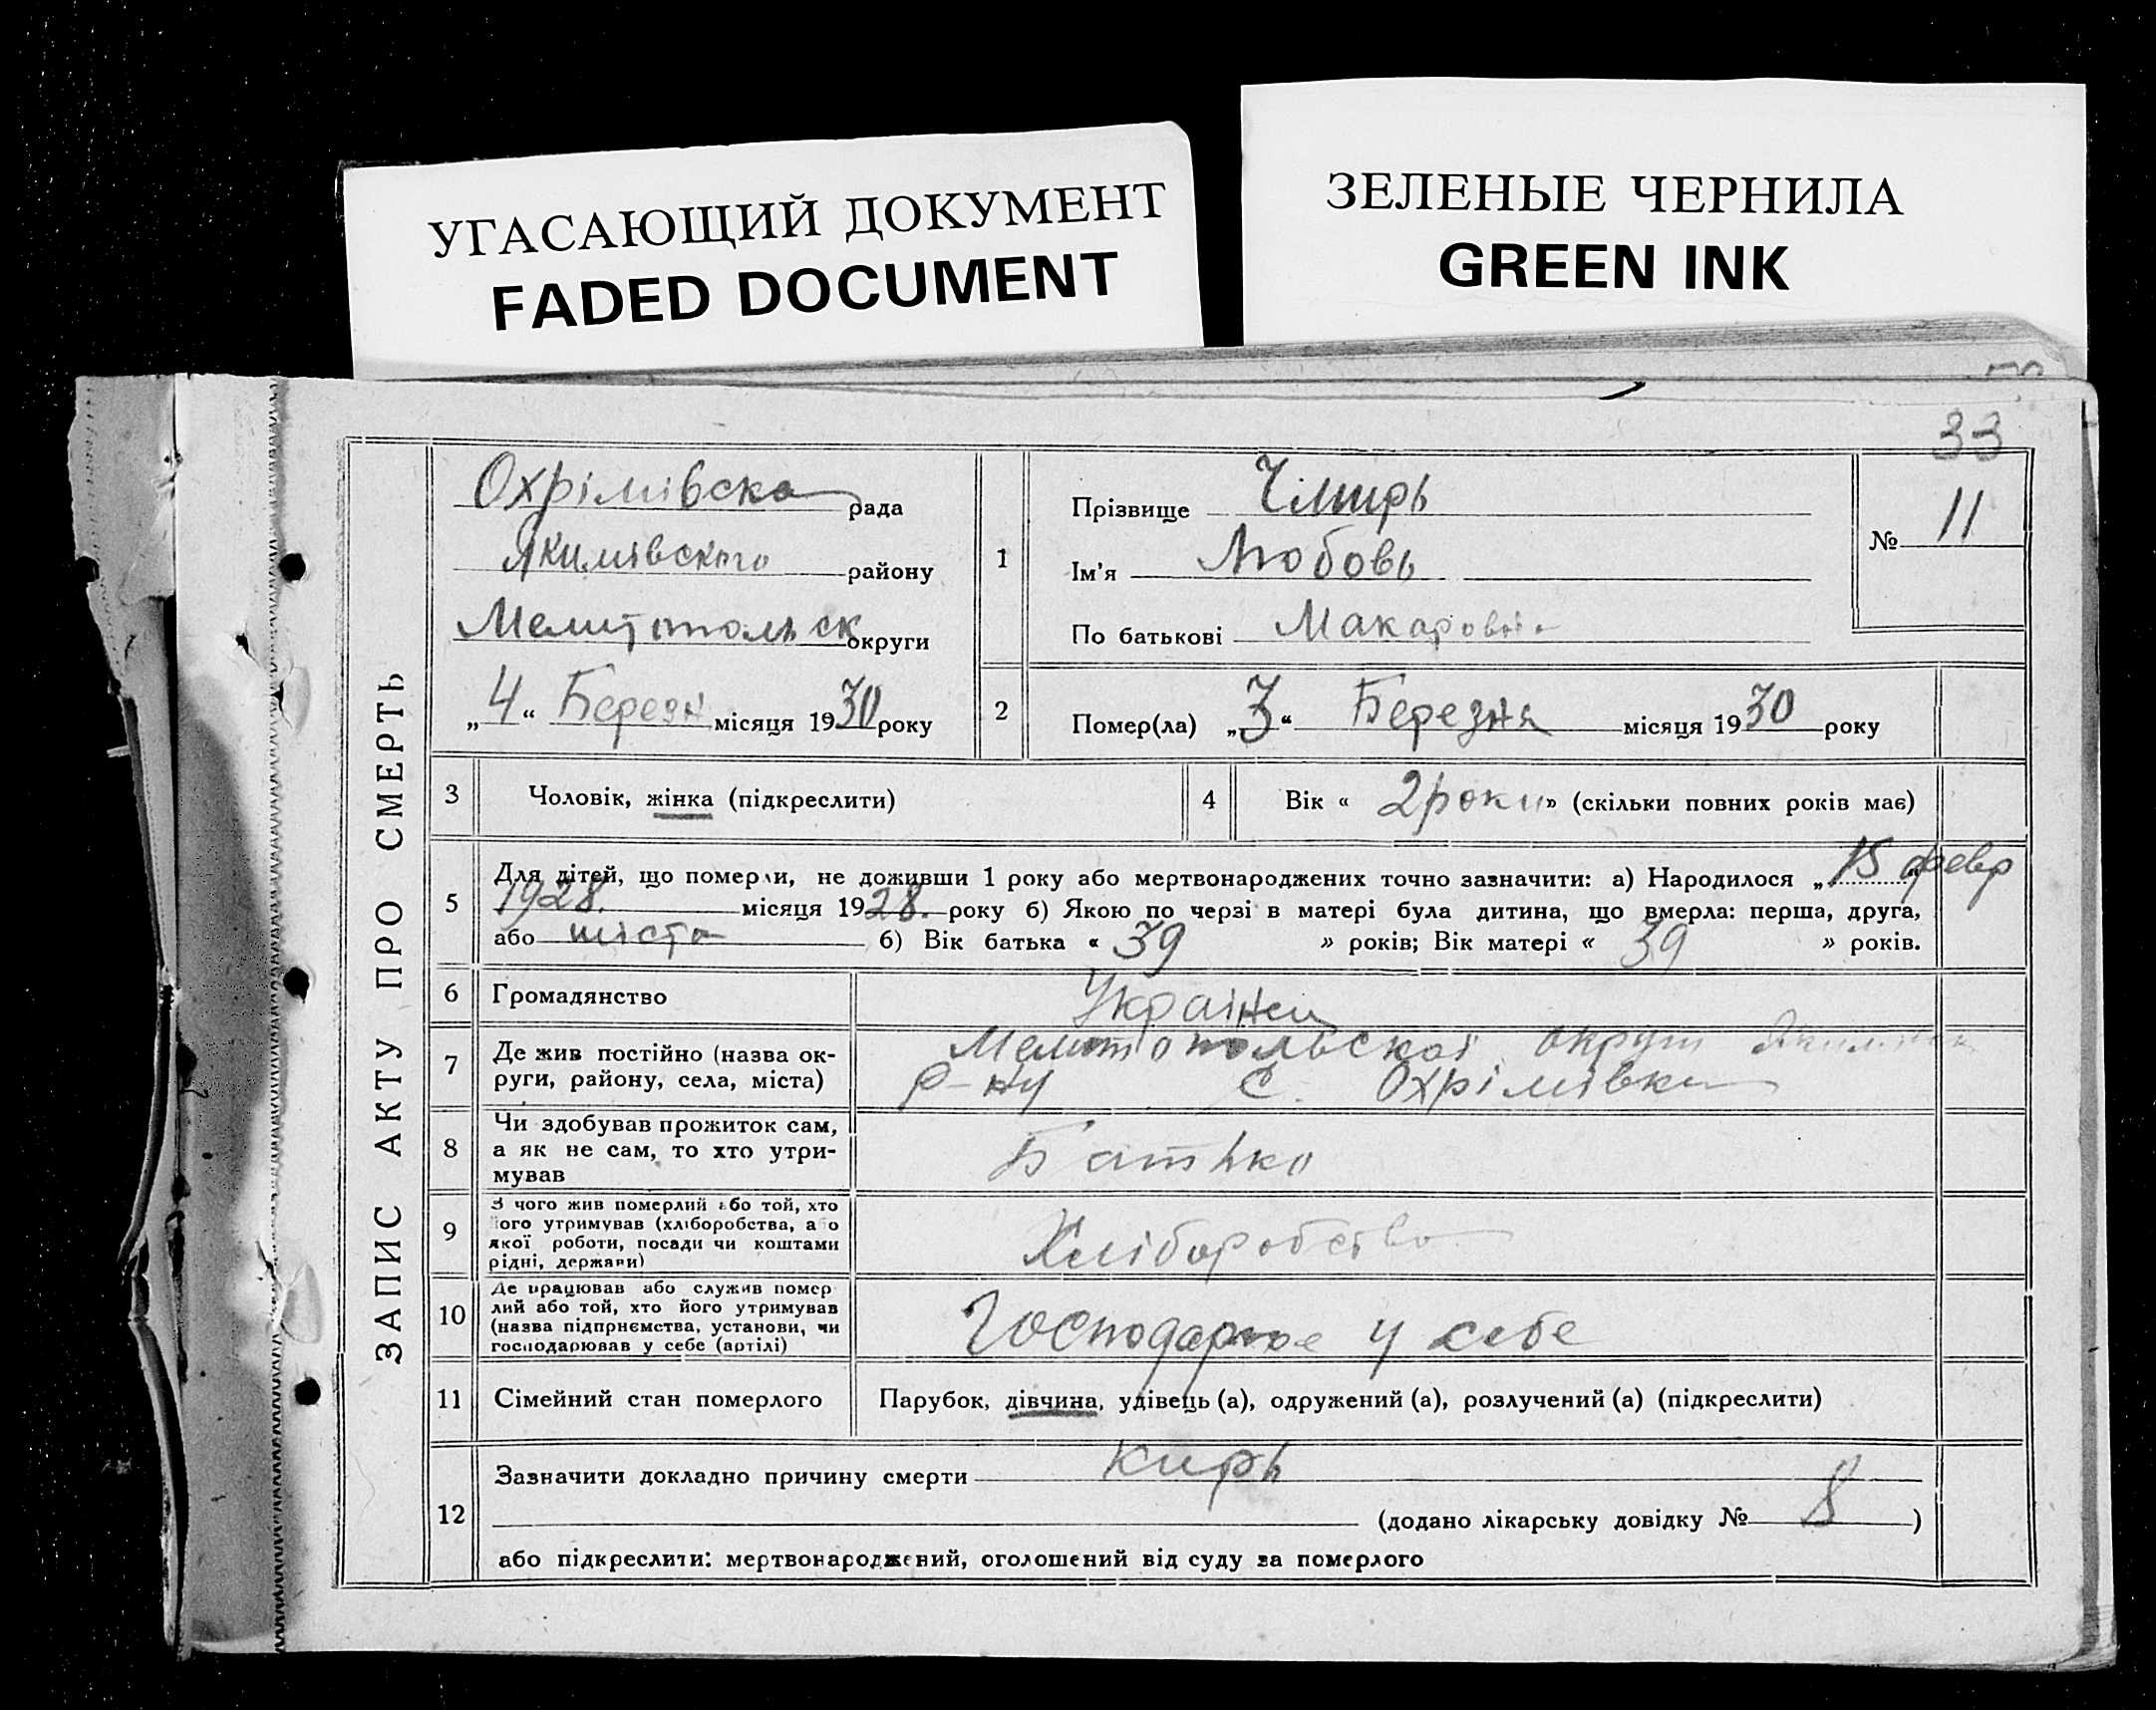 УГАСАЮЩИЙ ДОКУМЕНТ
FADED DOCUMENT
ЗЕЛЕНЫЕ ЧЕРНИЛА
GREEN INK
33
ЗАПИС АКТУ ПРО СМЕРТЬ
Охрімівска рада
Якимівского району
Мелитопольск округи
„4“ Березн місяця 1930 року
1
Прізвище Чмирь
Ім'я Любовь
По батькові Макаровна
№ 11
2 Помер(ла) „3“ Березня місяця 1930 року
3 Чоловік, жінка (підкреслити)
4 Вік « 2 роки » (скільки повних років має)
5 Для дітей, що померли, не доживши 1 року або мертвонароджених точно зазначити: а) Народилося „15 февр
1928. місяця 1928. року б) Якою по черзі в матері була дитина, що вмерла: перша, друга,
або шіста б) Вік батька « 39 » років; Вік матері « 39 » років.
6 Громадянство Українец
7 Де жив постійно (назва ок-
руги, району, села, міста)
Мелитопольскої округи
р-ну С. Охрімівка
8 Чи здобував прожиток сам,
а як не сам, то хто утри-
мував
Батько
9 З чого жив померлий або той, хто
його утримував (хліборобства, або
якої роботи, посади чи коштами
рідні, держави)
Хліборобство
10 Де працював або служив помер
лий або той, хто його утримував
(назва підприємства, установи, чи
господарював у себе (артілі)
Господарює у себе
11 Сімейний стан померлого Парубок, дівчина, удівець (а), одружений (а), розлучений (а) (підкреслити)
12 Зазначити докладно причину смерти Кирь
(додано лікарську довідку № 8 )
або підкреслити: мертвонароджений, оголошений від суду за померлого